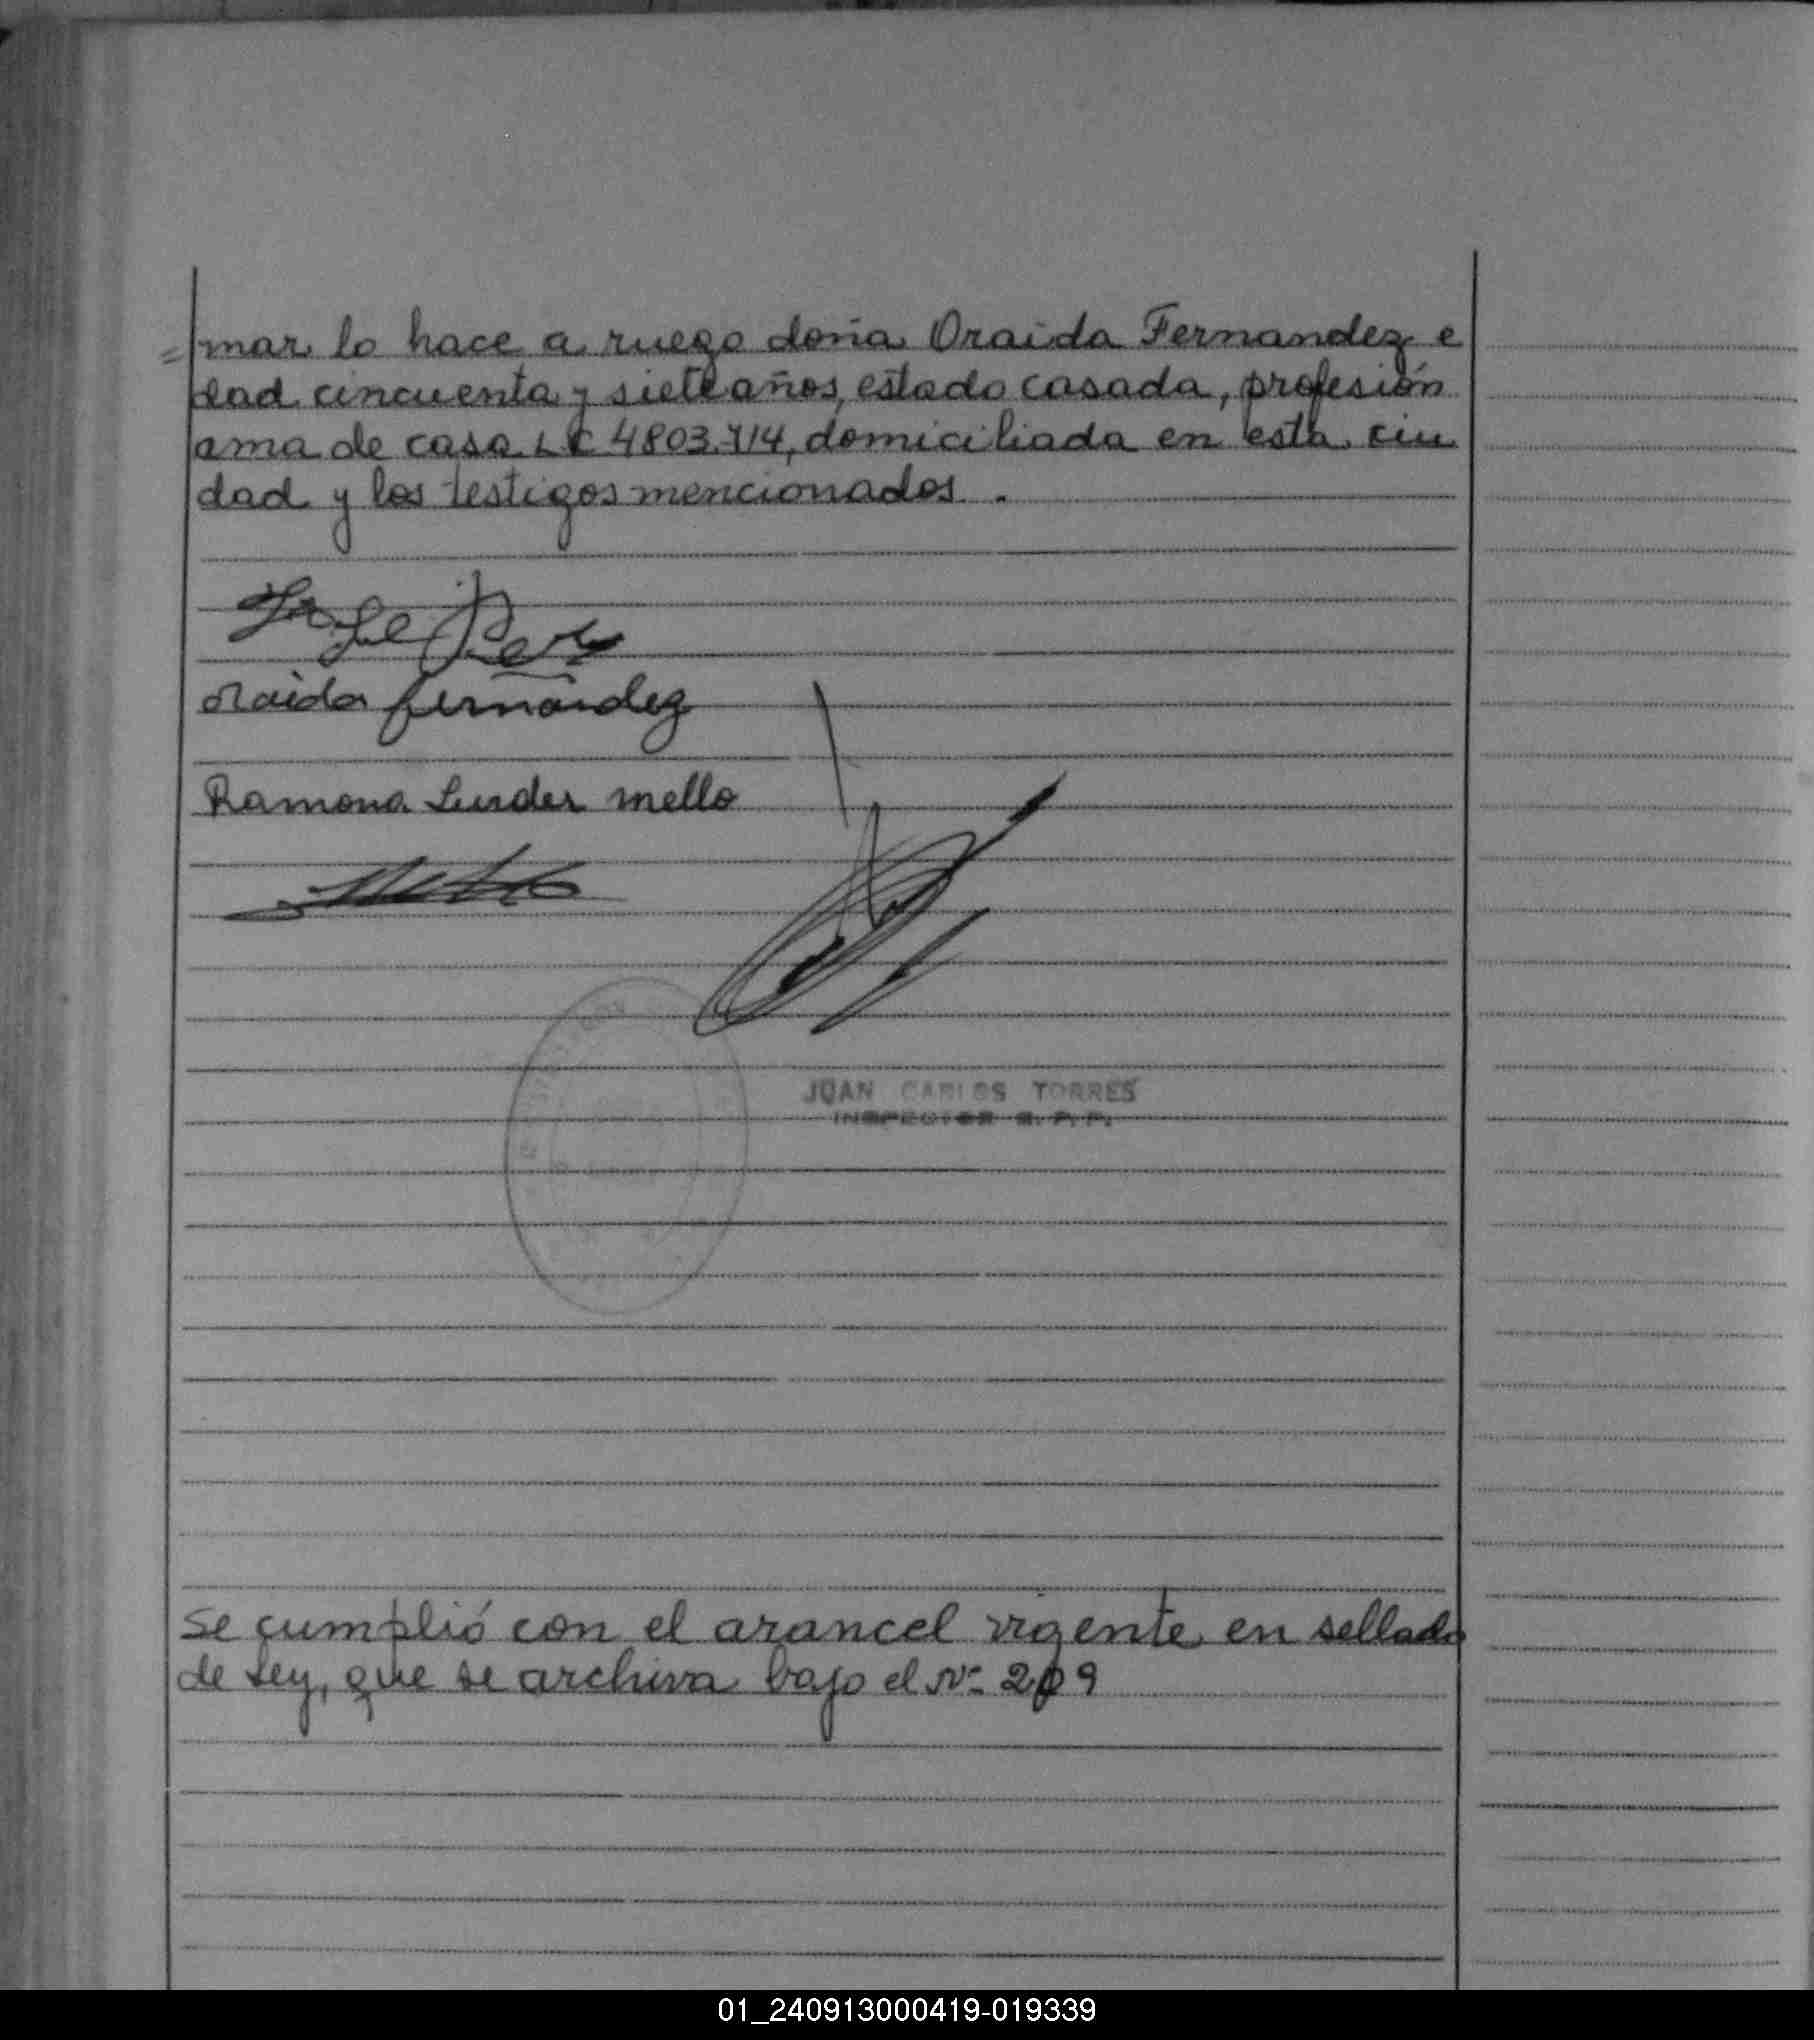 =mar lo hace a ruego doña Oraida Fernandez e
dad cincuenta y siete años, estado casada, profesión
ama de casa L C 4803.714, domiciliada en esta ciu
dad y los testigos mencionados.
oraida fernández
Ramona Lurdes mello
JUAN CARLOS TORRES
INSPECTOR
Se cumplió con el arancel vigente en sellado
de Ley, que se archiva bajo el Nº 209
01_240913000419-019339